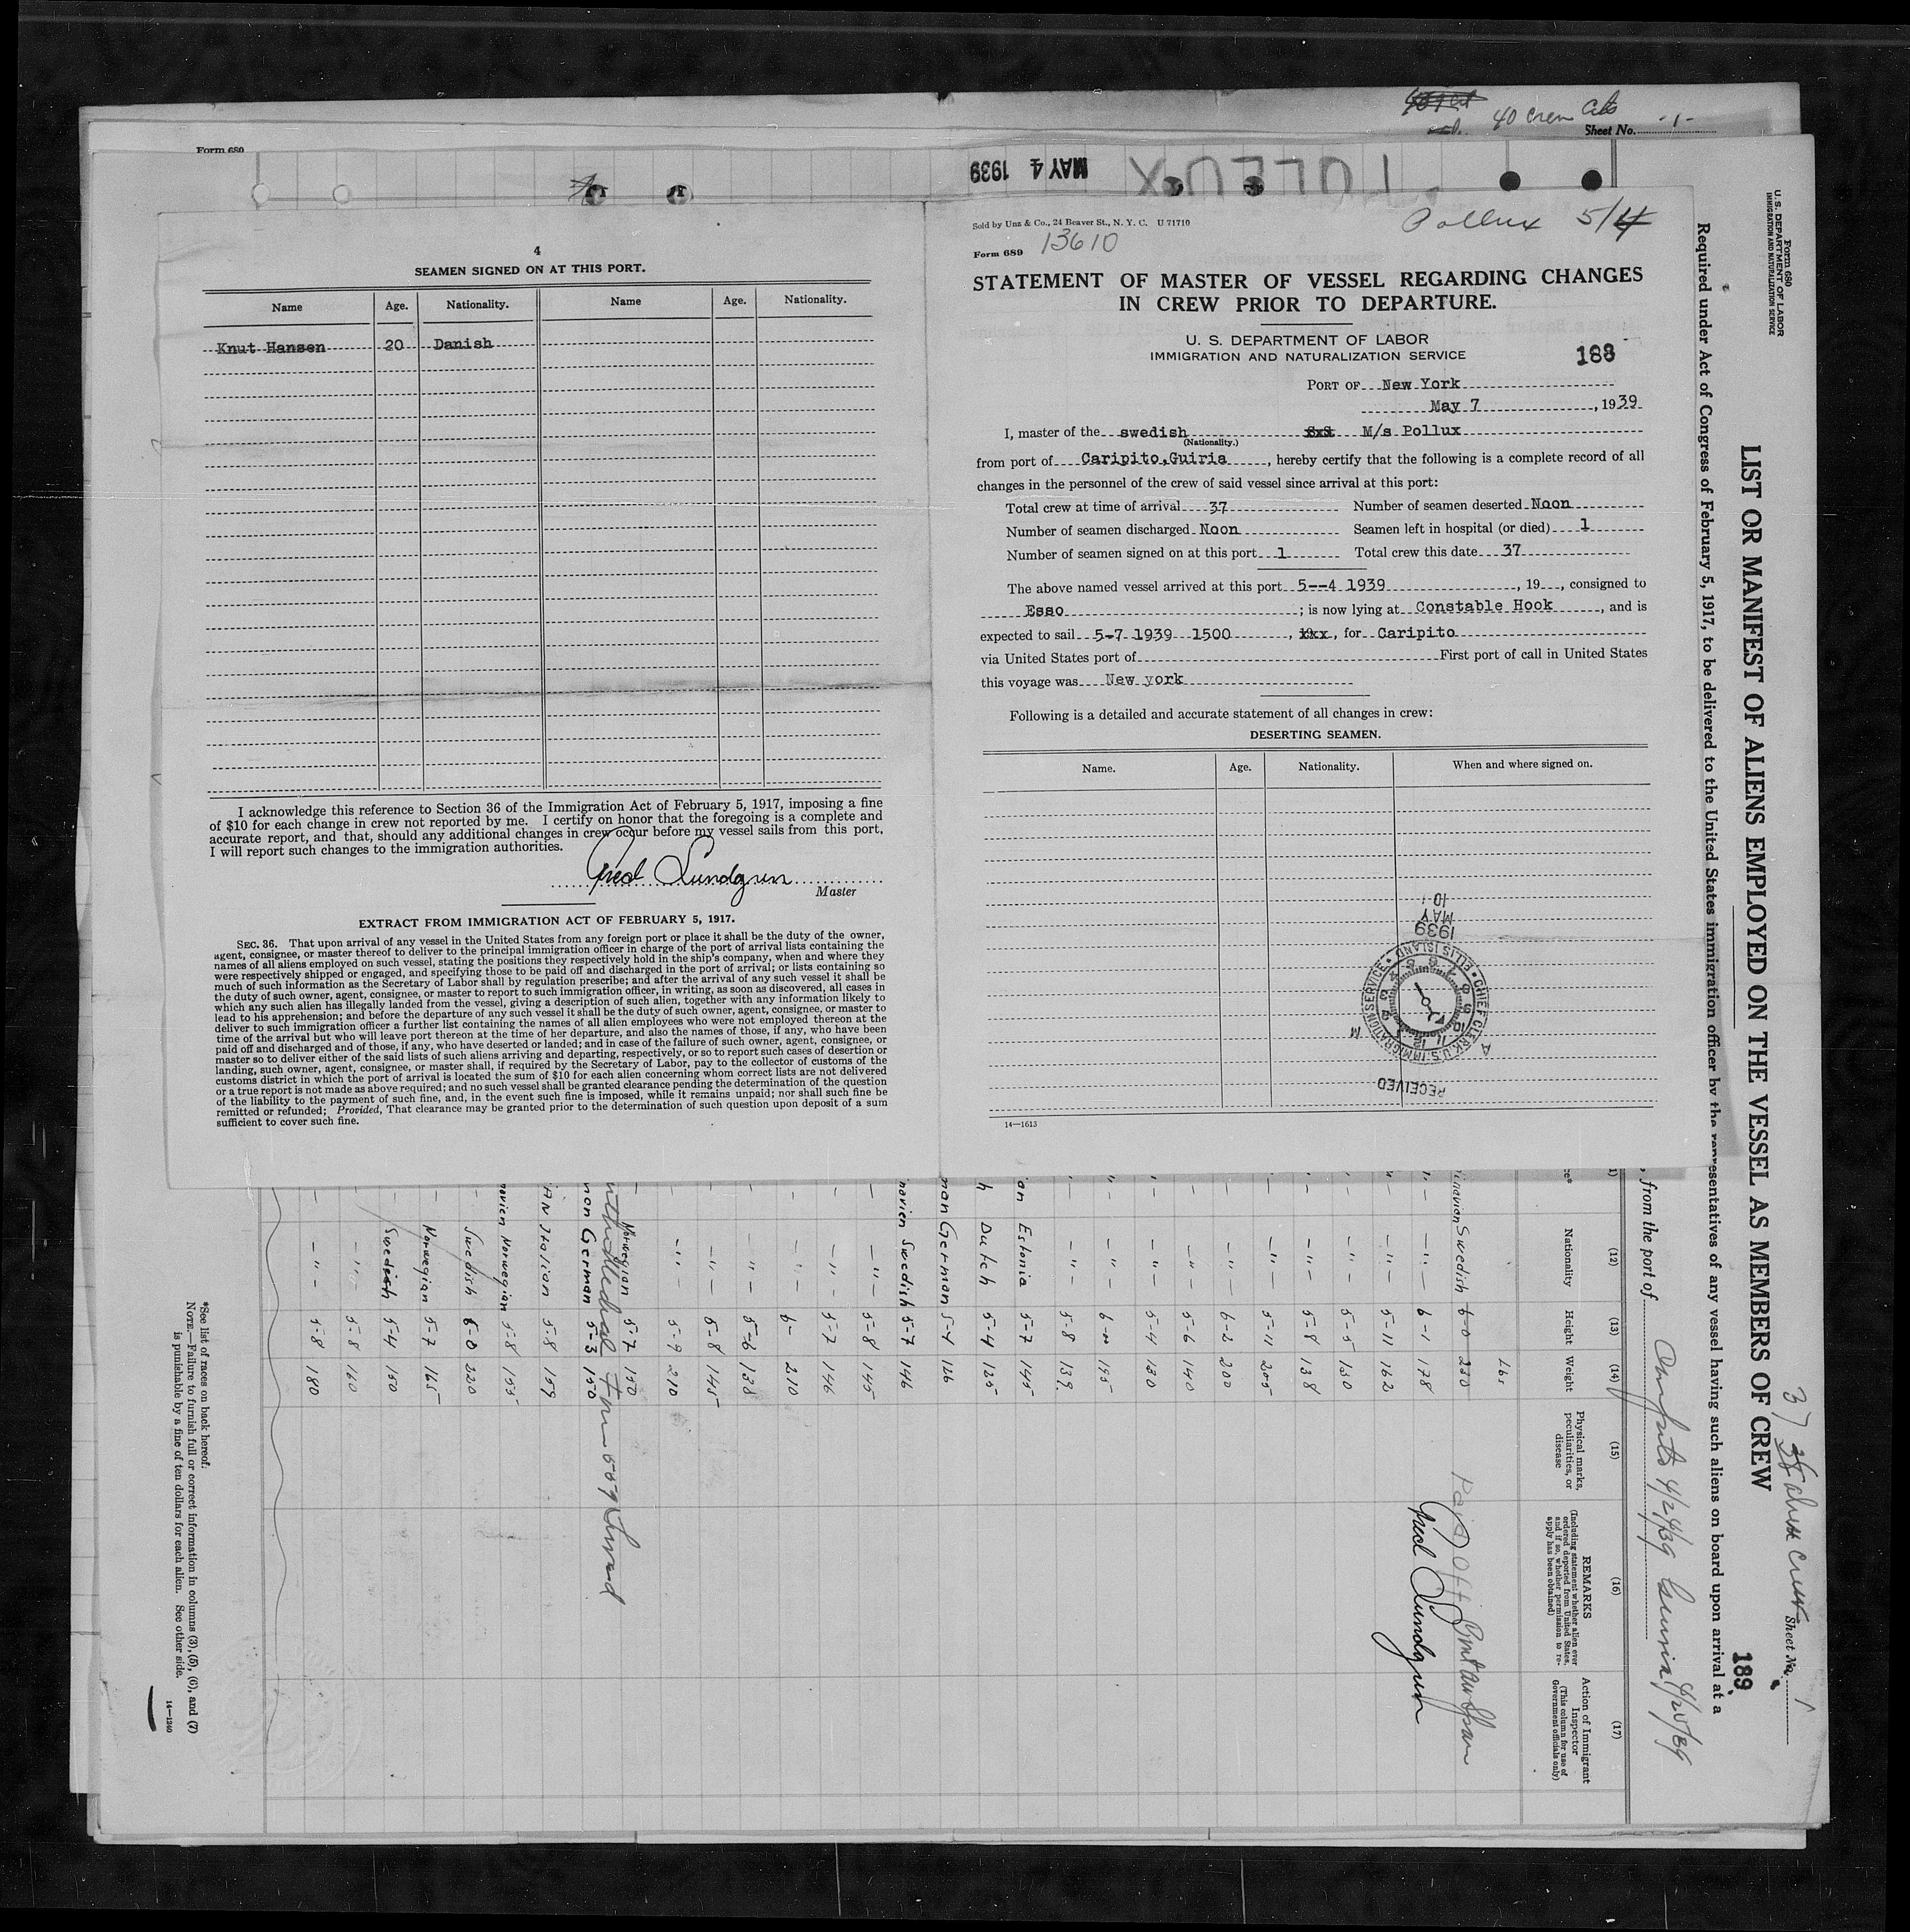 40 Crew
Sheet No. -1-
Form 689
MAY 4 1939
POLLUX
4
SEAMEN SIGNED ON AT THIS PORT.
Name Age. Nationality. Name Age. Nationality.
Knut Hansen 20 Danish
I acknowledge this reference to Section 36 of the Immigration Act of February 5, 1917, imposing a fine
of $10 for each change in crew not reported by me. I certify on honor that the foregoing is a complete and
accurate report, and that, should any additional changes in crew occur before my vessel sails from this port,
I will report such changes to the immigration authorities.
Fred Lundgren
Master
EXTRACT FROM IMMIGRATION ACT OF FEBRUARY 5, 1917.
SEC. 36. That upon arrival of any vessel in the United States from any foreign port or place it shall be the duty of the owner,
agent, consignee, or master thereof to deliver to the principal immigration officer in charge of the port of arrival lists containing the
names of all aliens employed on such vessel, stating the positions they respectively hold in the ship's company, when and where they
were respectively shipped or engaged, and specifying those to be paid off and discharged in the port of arrival; or lists containing so
much of such information as the Secretary of Labor shall by regulation prescribe; and after the arrival of any such vessel it shall be
the duty of such owner, agent, consignee, or master to report to such immigration officer, in writing, as soon as discovered, all cases in
which any such alien has illegally landed from the vessel, giving a description of such alien, together with any information likely to
lead to his apprehension; and before the departure of any such vessel it shall be the duty of such owner, agent, consignee, or master to
deliver to such immigration officer a further list containing the names of all alien employees who were not employed thereon at the
time of the arrival but who will leave port thereon at the time of her departure, and also the names of those, if any, who have been
paid off and discharged and of those, if any, who have deserted or landed; and in case of the failure of such owner, agent, consignee, or
master so to deliver either of the said lists of such aliens arriving and departing, respectively, or so to report such cases of desertion or
landing, such owner, agent, consignee, or master shall, if required by the Secretary of Labor, pay to the collector of customs of the
customs district in which the port of arrival is located the sum of $10 for each alien concerning whom correct lists are not delivered
or a true report is not made as above required; and no such vessel shall be granted clearance pending the determination of the question
of the liability to the payment of such fine, and, in the event such fine is imposed, while it remains unpaid; nor shall such fine be
remitted or refunded; Provided, That clearance may be granted prior to the determination of such question upon deposit of a sum
sufficient to cover such fine.
Sold by Unz & Co., 24 Beaver St., N. Y. C. U 71710
Pollux 5/4
Form 689 13610
STATEMENT OF MASTER OF VESSEL REGARDING CHANGES
IN CREW PRIOR TO DEPARTURE.
U. S. DEPARTMENT OF LABOR
IMMIGRATION AND NATURALIZATION SERVICE
188
PORT OF New York
May 7, 1939
I, master of the swedish M/s Pollux
(Nationality.)
from port of Caripito,Guiria, hereby certify that the following is a complete record of all
changes in the personnel of the crew of said vessel since arrival at this port:
Total crew at time of arrival 37 Number of seamen deserted Noon
Number of seamen discharged Noon Seamen left in hospital (or died) 1
Number of seamen signed on at this port 1 Total crew this date 37
The above named vessel arrived at this port 5--4 1939, 19, consigned to
Esso; is now lying at Constable Hook, and is
expected to sail 5-7 1939 1500, for Caripito
via United States port of First port of call in United States
this voyage was New york
Following is a detailed and accurate statement of all changes in crew:
DESERTING SEAMEN.
Name. Age. Nationality. When and where signed on.
RECEIVED
CHIEF CLERK U.S. IMMIGRATION SERVICE • ELLIS ISLAND •
1939 MAY 10
14—1613
Form 680
U. S. DEPARTMENT OF LABOR
IMMIGRATION AND NATURALIZATION SERVICE
Sheet No. 1
189
LIST OR MANIFEST OF ALIENS EMPLOYED ON THE VESSEL AS MEMBERS OF CREW
Required under Act of Congress of February 5, 1917, to be delivered to the United States immigration officer by the representatives of any vessel having such aliens on board upon arrival at a
, from the port of 4/24/39 Guiria 4/25/39
(12) (13) (14) (15) (16) (17)
Nationality Height Weight
Physical marks, peculiarities, or disease
REMARKS
(Including statement whether alien ever ordered deported from United States, and if so, whether permission to reapply has been obtained)
Action of Immigrant Inspector
(This column for use of Government officials only)
Lbs
Swedish 6-0 230 Paid Off
-"- 6-1 178 Fred Lundgren
-"- 5-11 162
-"- 5-5 150
-"- 5-8 138
-"- 5-11 205
-"- 6-2 200
-"- 5-6 140
-"- 5-4 130
-"- 6-0 195
-"- 5-8 139
Estonia 5-7 145
Dutch 5-4 125
German 5-4 126
Swedish 5-7 146
-"- 5-8 145
-"- 5-7 146
-"- 6- 210
-"- 5-6 138
-"- 5-8 145
-"- 5-9 210
Norwegian 5-7 150
German 5-3 150
Italian 5-8 159
Norwegian 5-8 155
Swedish 6-0 220
Norwegian 5-7 165
Swedish 5-4 150
-"- 5-8 160
-"- 5-8 180
*See list of races on back hereof.
NOTE.—Failure to furnish full or correct information in columns (3), (5), (6), and (7)
is punishable by a fine of ten dollars for each alien. See other side.
14—1240